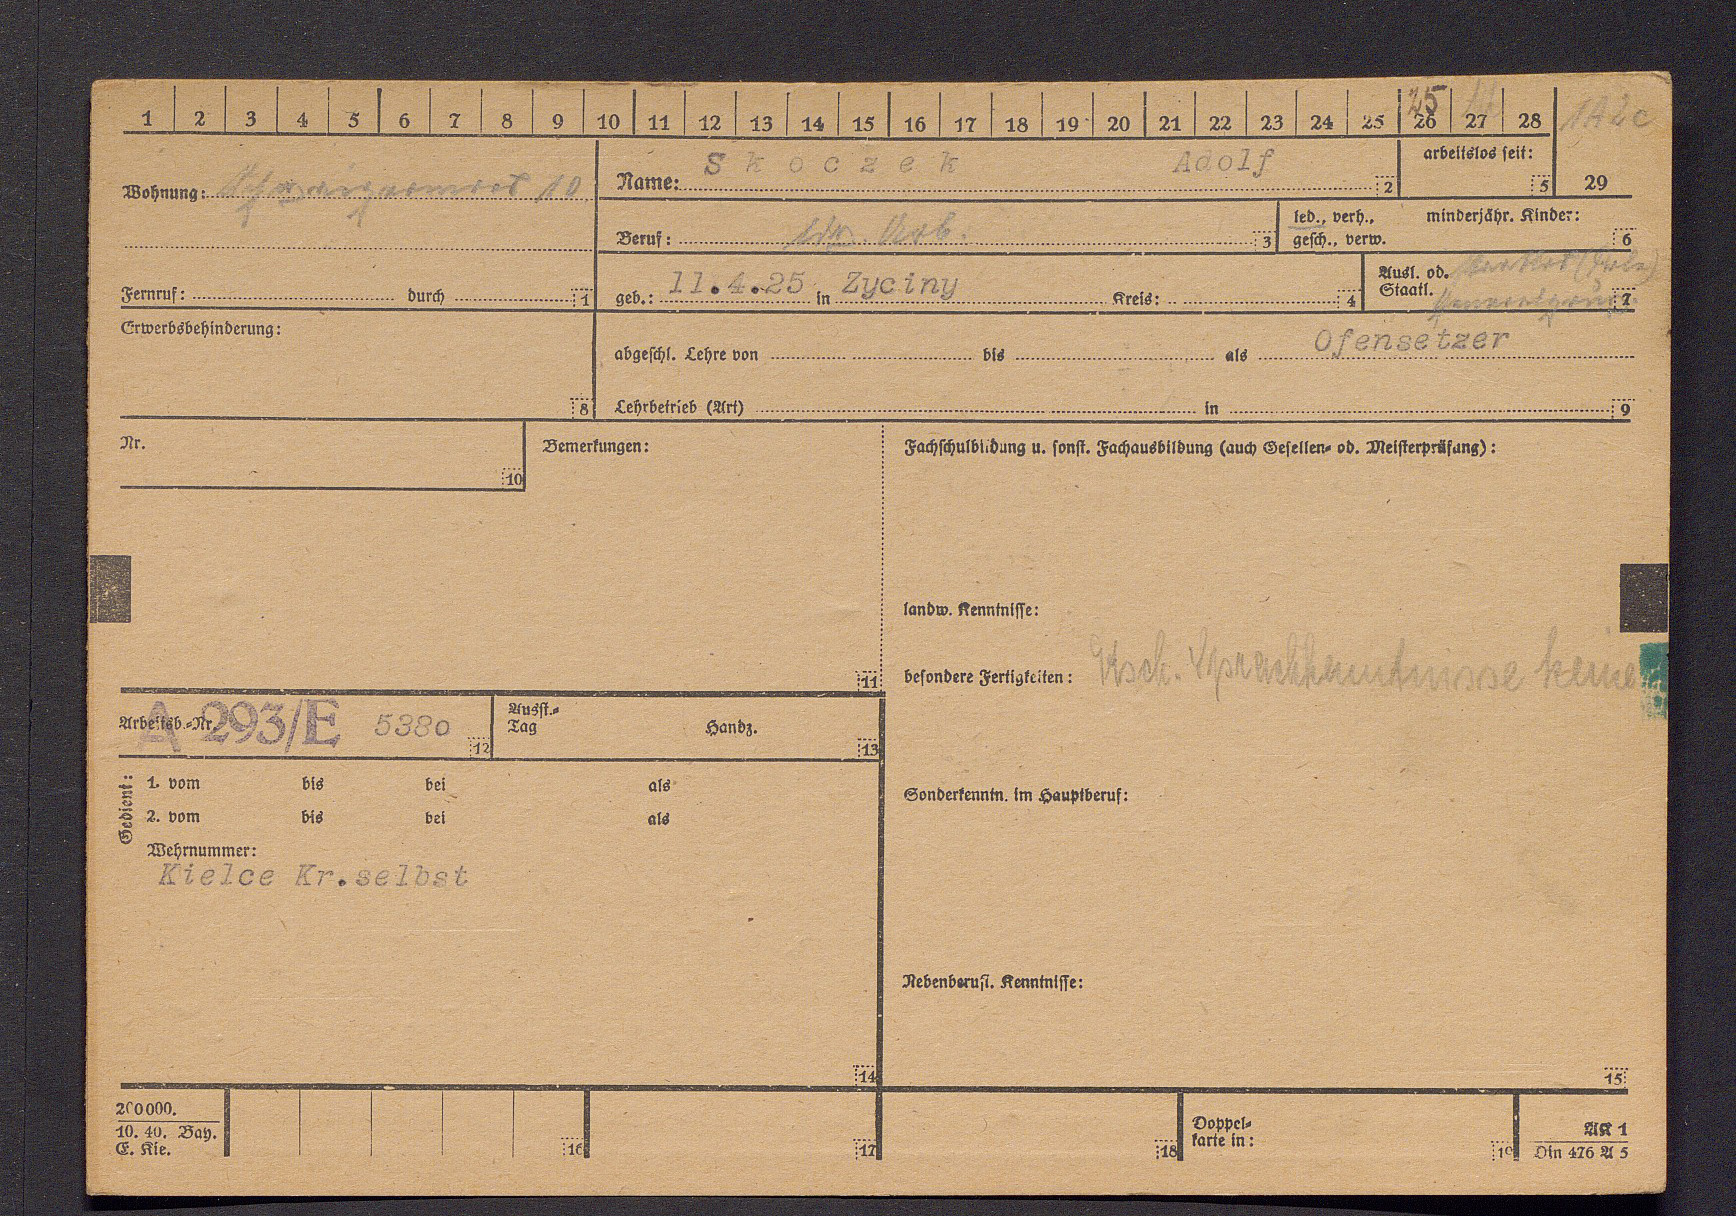 1 2 3 4 5 6 7 8 9 10 11 12 13 14 15 16 17 18 19 20 21 22 23 24 25 26 27 28
25
1A2c
29
Wohnung: 10
Name: Skoczek Adolf 2
arbeitslos seit: 5
Beruf: ldw. Arb. 3
led., verh., minderjähr. Kinder:
gesch., verw. 6
Fernruf: durch 1
geb.: 11.4.25 in Zyciny Kreis: 4
Ausl. od.
Staatl. 7
Erwerbsbehinderung: 8
abgeschl. Lehre von bis als Ofensetzer
Lehrbetrieb (Art) in 9
Nr. 10
Bemerkungen: 11
Fachschulbildung u. sonst. Fachausbildung (auch Gesellen- od. Meisterprüfung):
landw. Kenntnisse:
besondere Fertigkeiten: Dtsch. Sprachkenntnisse keine
Arbeitsb.-Nr. A 293/E 5380 12
Ausst.-
Tag Handz. 13
Gedient:
1. vom bis bei als
2. vom bis bei als
Wehrnummer:
Kielce Kr.selbst
14
Sonderkenntn. im Hauptberuf:
Nebenberufl. Kenntnisse:
15
200000.
10. 40. Bay.
E. Kie.
16
17
18
Doppel-
karte in: 19
AK 1
Din 476 A 5